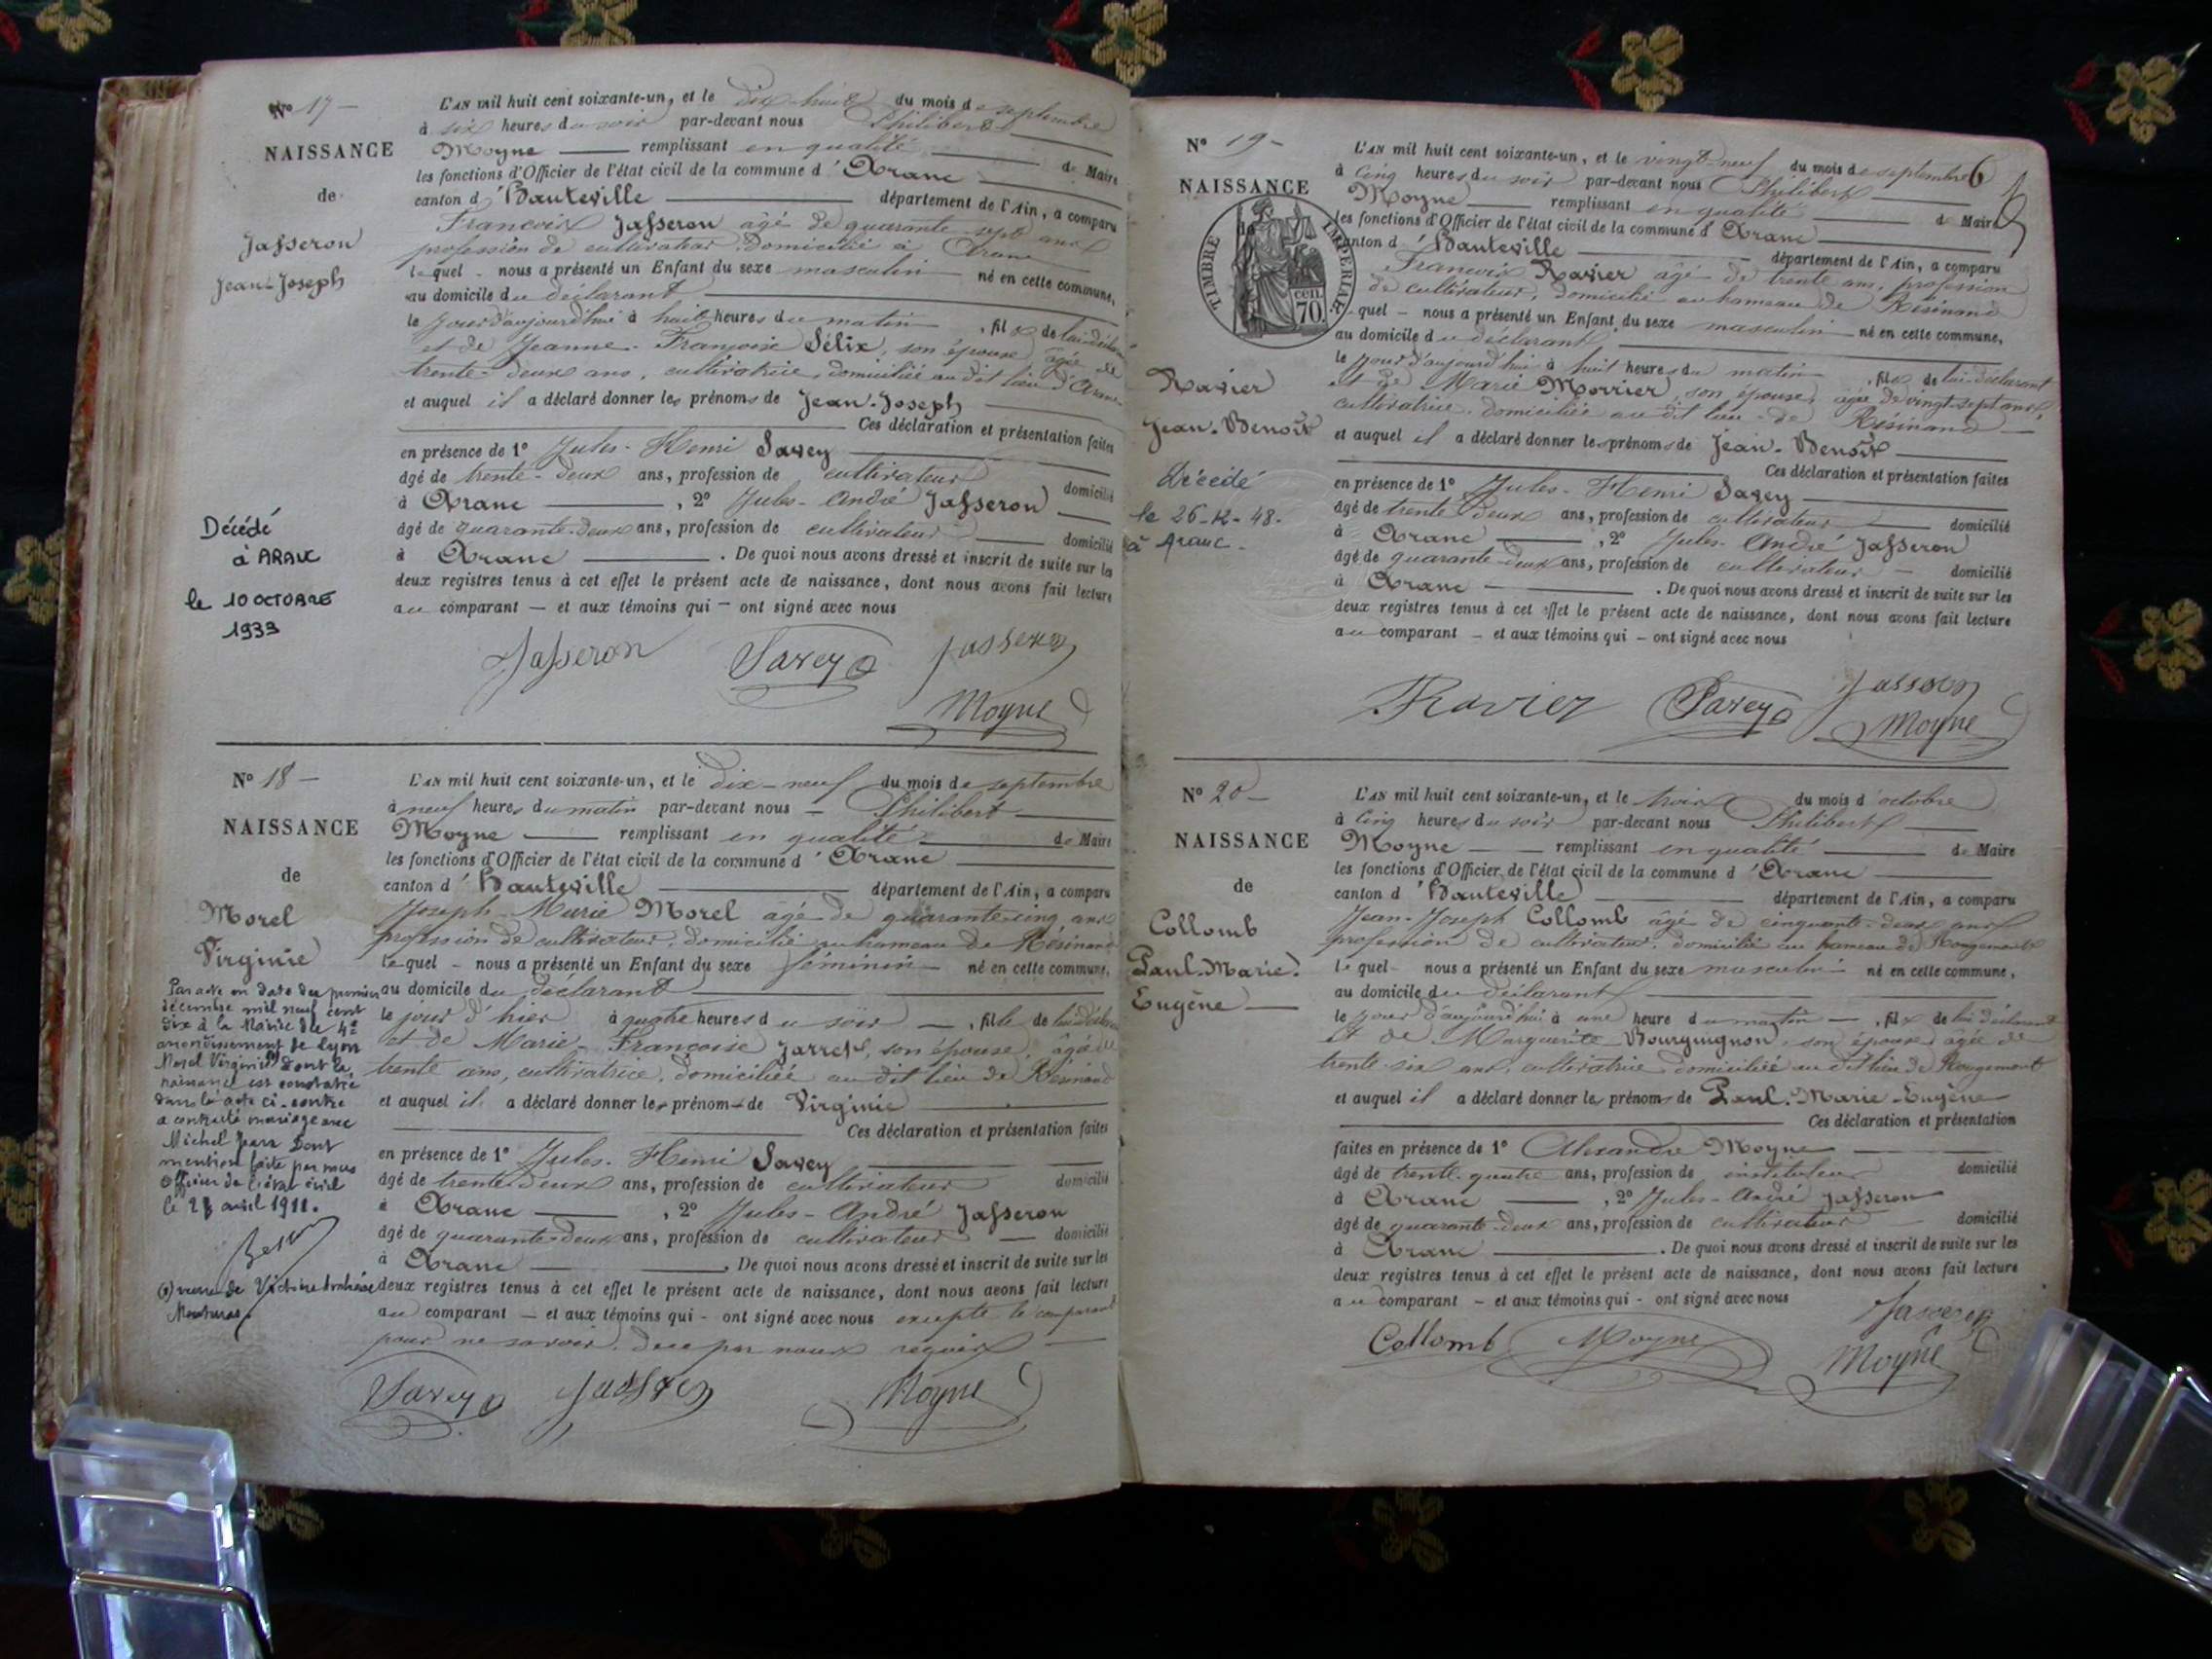 Nº 17 —
NAISSANCE
de
Jasseron
Jean-Joseph
Décédé
à ARANC
le 10 OCTOBRE
1933
L'AN mil huit cent soixante-un, et le dix-huit du mois de septembre
à six heures du soir par-devant nous Philibert
Moyne remplissant en qualité de Maire
les fonctions d'Officier de l'état civil de la commune d'Aranc
canton d'Hauteville département de l'Ain, a comparu
François Jasseron âgé de quarante-sept ans
profession de cultivateur, domicilié à Aranc
lequel nous a présenté un Enfant du sexe masculin né en cette commune,
au domicile du déclarant
le jour d'aujourd'hui à huit heures du matin, fils de lui déclarant
et de Jeanne-Françoise Sélix, son épouse, âgée de
trente-deux ans, cultivatrice, domiciliée au dit lieu d'Aranc
et auquel il a déclaré donner les prénoms de Jean-Joseph
Ces déclaration et présentation faites
en présence de 1º Jules-Henri Savey
âgé de trente-deux ans, profession de cultivateur domicilié
à Aranc, 2º Jules-André Jasseron
âgé de quarante-deux ans, profession de cultivateur domicilié
à Aranc. De quoi nous avons dressé et inscrit de suite sur les
deux registres tenus à cet effet le présent acte de naissance, dont nous avons fait lecture
au comparant — et aux témoins qui — ont signé avec nous
Jasseron Savey Jasseron
Moyne
Nº 18 —
NAISSANCE
de
Morel
Virginie
Par acte en date du premier
décembre mil neuf cent
dix à la Mairie du 4e
arrondissement de Lyon
Morel Virginie dont la
naissance est constatée
dans l'acte ci-contre
a contracté mariage avec
Michel Jean Dont
mention faite par nous
Officier de l'état civil
le 28 avril 1911.
(1) veuve de
L'AN mil huit cent soixante-un, et le dix-neuf du mois de septembre
à neuf heures du matin par-devant nous — Philibert
Moyne remplissant en qualité de Maire
les fonctions d'Officier de l'état civil de la commune d'Aranc
canton d'Hauteville département de l'Ain, a comparu
Joseph-Marie Morel âgé de quarante-cinq ans
profession de cultivateur, domicilié au hameau de Résinand
lequel — nous a présenté un Enfant du sexe féminin né en cette commune,
au domicile du déclarant
le jour d'hier à quatre heures du soir —, fille de lui déclarant
et de Marie-Françoise Jarret, son épouse, âgée de
trente ans, cultivatrice, domiciliée au dit lieu de Résinand
et auquel il a déclaré donner le prénom de Virginie
Ces déclaration et présentation faites
en présence de 1º Jules-Henri Savey
âgé de trente-deux ans, profession de cultivateur domicilié
à Aranc, 2º Jules-André Jasseron
âgé de quarante-deux ans, profession de cultivateur — domicilié
à Aranc. De quoi nous avons dressé et inscrit de suite sur les
deux registres tenus à cet effet le présent acte de naissance, dont nous avons fait lecture
au comparant — et aux témoins qui - ont signé avec nous excepté le comparant
pour ne savoir, de ce par nous requis
Savey Jasseron Moyne
Nº 19 -
NAISSANCE
TIMBRE IMPÉRIAL
CEN.
70.
Ravier
Jean-Benoît
Décédé
le 26-12-48.
à Aranc.
6
L'AN mil huit cent soixante-un, et le vingt-neuf du mois de septembre
à cinq heures du soir par-devant nous Philibert
Moyne remplissant en qualité de Maire
les fonctions d'Officier de l'état civil de la commune d'Aranc
canton d'Hauteville département de l'Ain, a comparu
François Ravier âgé de trente ans, profession
de cultivateur, domicilié au hameau de Résinand
lequel — nous a présenté un Enfant du sexe masculin né en cette commune,
au domicile du déclarant
le jour d'aujourd'hui à huit heures du matin, fils de lui déclarant
et de Marie Morrier, son épouse, âgée de vingt-sept ans,
cultivatrice, domiciliée au dit lieu de Résinand
et auquel il a déclaré donner les prénoms de Jean-Benoît
Ces déclaration et présentation faites
en présence de 1º Jules-Henri Savey
âgé de trente-deux ans, profession de cultivateur domicilié
à Aranc, 2º Jules-André Jasseron
âgé de quarante-deux ans, profession de cultivateur — domicilié
à Aranc. De quoi nous avons dressé et inscrit de suite sur les
deux registres tenus à cet effet le présent acte de naissance, dont nous avons fait lecture
au comparant — et aux témoins qui — ont signé avec nous
Ravier Savey Jasseron
Moyne
Nº 20 —
NAISSANCE
de
Collomb
Paul-Marie-
Eugène
L'AN mil huit cent soixante-un, et le trois du mois d'octobre
à cinq heures du soir par-devant nous Philibert
Moyne remplissant en qualité de Maire
les fonctions d'Officier de l'état civil de la commune d'Aranc
canton d'Hauteville département de l'Ain, a comparu
Jean-Joseph Collomb âgé de cinquante-deux ans
profession de cultivateur, domicilié au hameau de Rougemont
lequel nous a présenté un Enfant du sexe masculin né en cette commune,
au domicile du déclarant
le jour d'aujourd'hui à une heure du matin —, fils de lui déclarant
et de Marguerite Bourguignon, son épouse, âgée de
trente-six ans, cultivatrice domiciliée au dit lieu de Rougemont
et auquel il a déclaré donner les prénoms de Paul-Marie-Eugène
Ces déclaration et présentation
faites en présence de 1º Alexandre Moyne
âgé de trente-quatre ans, profession de instituteur domicilié
à Aranc, 2º Jules-André Jasseron
âgé de quarante-deux ans, profession de cultivateur domicilié
à Aranc. De quoi nous avons dressé et inscrit de suite sur les
deux registres tenus à cet effet le présent acte de naissance, dont nous avons fait lecture
au comparant — et aux témoins qui - ont signé avec nous
Jasseron
Collomb Moyne Moyne